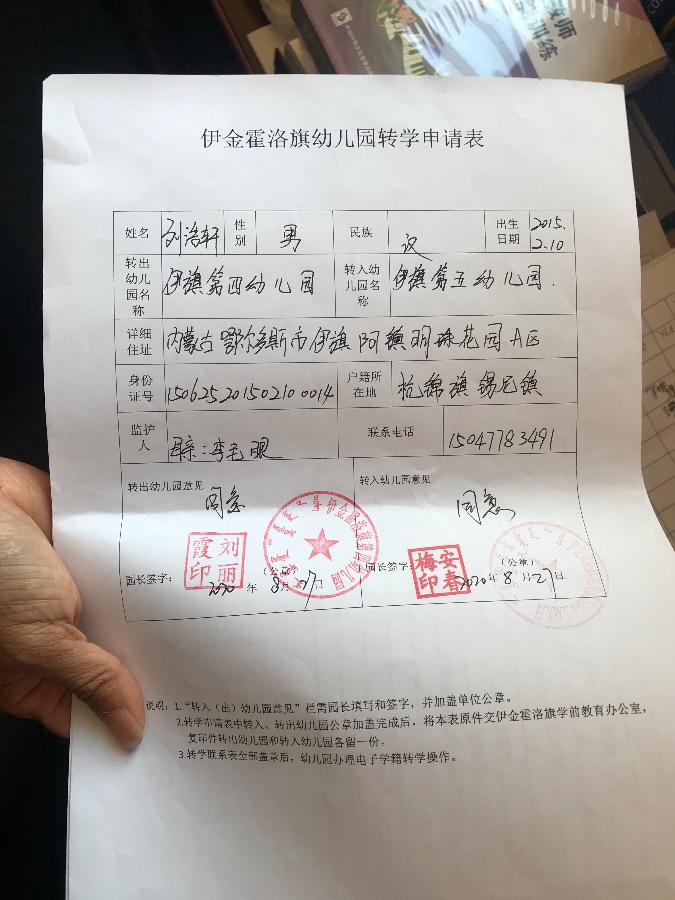 教师
训练
伊金霍洛旗幼儿园转学申请表
姓名 刘浩轩 性别 男 民族 汉 出生日期 2015.2.10
转出幼儿园名称 伊旗第四幼儿园 转入幼儿园名称 伊旗第五幼儿园.
详细住址 内蒙古鄂尔多斯市伊旗阿镇明珠花园A区
身份证号 150625201502100014 户籍所在地 杭锦旗锡尼镇
监护人 李毛眼 联系电话 15047783491
转出幼儿园意见 转入幼儿园意见
同意 同意
刘丽霞印 伊金霍洛旗第四幼儿园 安春梅印
园长签字: (公章) 2020年8月27日 园长签字: (公章) 2020年8月27日
说明: 1."转入(出)幼儿园意见"栏需园长填写和签字,并加盖单位公章。
2.转学申请表中转入、转出幼儿园公章加盖完成后,将本表原件交伊金霍洛旗学前教育办公室,
复印件转出幼儿园和转入幼儿园各留一份。
3.转学联系表全部盖章后,幼儿园办理电子学籍转学操作。